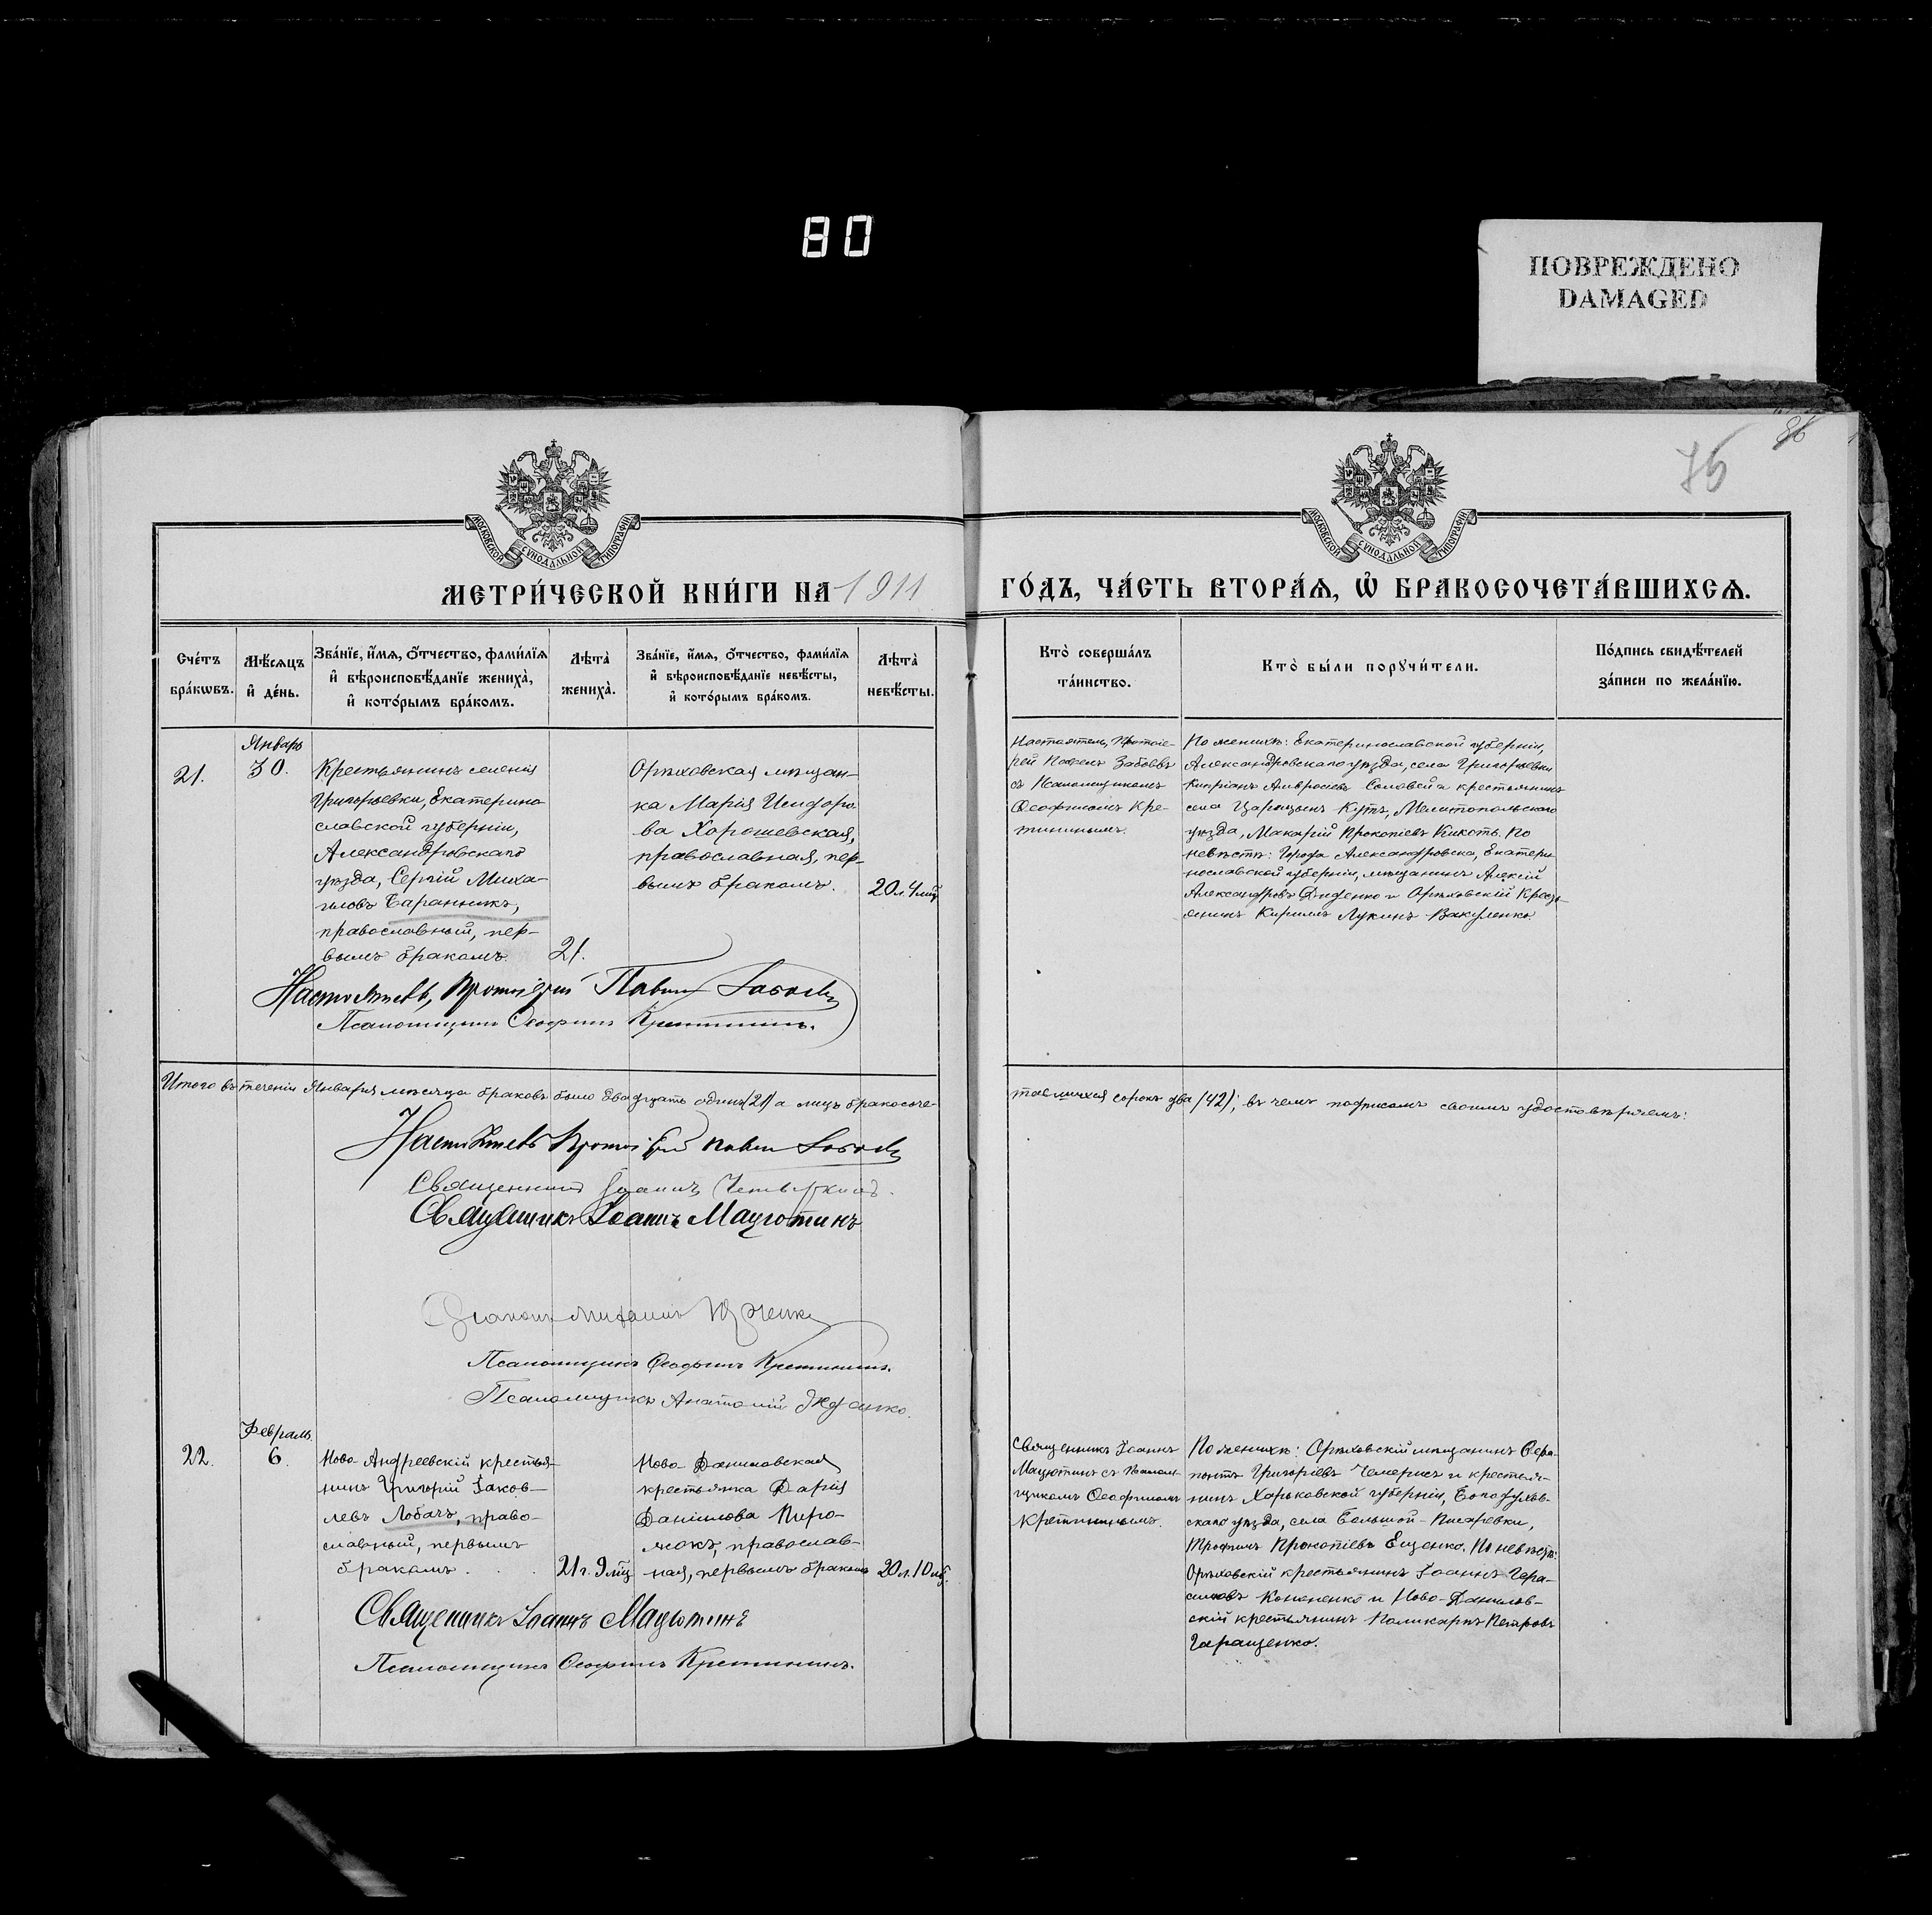 80
ПОВРЕЖДЕНО
DAMAGED
86
76
МОСКОВСКОЙ СѴНОДАЛЬНОЙ ТИПОГРАФІИ
МОСКОВСКОЙ СѴНОДАЛЬНОЙ ТИПОГРАФІИ
МЕТРИ́ЧЕСКОЙ КНИ́ГИ НА 1911 ГО́ДЪ, ЧА́СТЬ ВТОРА́Ѧ, Ѽ БРАКОСОЧЕТА́ВШИХСѦ.
Сче́тъ бра́кѡвъ.
Мѣ́сѧцъ и҆ де́нь.
Зва́нїе, и҆́мѧ, ѻ҆́тчество, фами́лїѧ и҆ вѣроисповѣ́данїе жениха̀, и҆ кото́рымъ бра́комъ.
Лѣта̀ жениха̀.
Зва́нїе, и҆́мѧ, ѻ҆́тчество, фами́лїѧ и҆ вѣроисповѣ́данїе невѣ́сты, и҆ кото́рымъ бра́комъ.
Лѣта̀ невѣ́сты.
Кто̀ соверша́лъ та́инство.
Кто̀ бы́ли порꙋчи́тели.
По́дпись свидѣ́телей за́писи по жела́нїю.
21.
Январь
30.
Крестьянинъ селенія
Григорьевки, Екатерино
славской губерніи,
Александровскаго
уѣзда, Сергій Миха-
иловъ Баранникъ,
православный, пер-
вымъ бракомъ.
21.
Орѣховская мѣщан-
ка Марія Исидоро
ва Хорошевская,
православная, пер-
вымъ бракомъ.
20 л. 4 мѣс
Настоятель, Протоіе-
рей Павелъ Забоевъ
съ Псаломщикомъ
Ѳеофиломъ Кре-
тининымъ.
По женихѣ: Екатеринославской губерніи,
Александровскаго уѣзда, села Григорьевки
Кипріанъ Амвросіевъ Соловей и крестьянинъ
села Царицынъ Кутъ, Мелитопольскаго
уѣзда, Макарій Прокопіевъ Кикоть. По
невѣстѣ: Города Александровска, Екатери
нославской губерніи, мѣщанинъ Алексій
Александровъ Диденко и Орѣховскій Кресть-
янинъ Кириллъ Лукинъ Вакуленко
Настоятель, Протоіерей Павелъ Забоевъ
Псаломщикъ Ѳеофилъ Кретининъ.
Итого въ теченіи Января мѣсяца браковъ было двадцать одинъ (21) а лицъ бракосоче-
тавшихся сорокъ два (42); въ чемъ подписомъ своимъ удостовѣряемъ:
Настоятель Протоіерей Павелъ Забоевъ
Священникъ Іоаннъ
Священникъ Іоаннъ Мацютинъ
Діаконъ Михаилъ
Псаломщикъ Ѳеофилъ Кретининъ.
Псаломщикъ Анатолій
22.
Февраль.
6.
Ново-Андреевскій крестья-
нинъ Григорій Іаков-
левъ Лобачъ, право-
славный, первымъ
бракомъ . . .
21 г. 9 мѣс
Ново-Даниловская
крестьянка Дарія
Даніилова Пиро-
жокъ, православ-
ная, первымъ бракомъ
20 л. 10 мѣс.
Священникъ Іоаннъ
Мацютинъ съ Псалом-
щикомъ Ѳеофиломъ
Кретининымъ.
По женихѣ: Орѣховскій мѣщанинъ Ѳера-
понтъ Григоріевъ Чемерисъ и крестья-
нинъ Харьковской губерніи, Богодухов-
скаго уѣзда, села Большой-Писаревки,
Трофимъ Прокопіевъ Ещенко. По невѣстѣ:
Орѣховскій крестьянинъ Іоаннъ Гера-
симовъ Кононенко и Ново-Данилов-
скій крестьянинъ Поликарпъ Петровъ
Геращенко.
Священникъ Іоаннъ Мацютинъ
Псаломщикъ Ѳеофилъ Кретининъ.